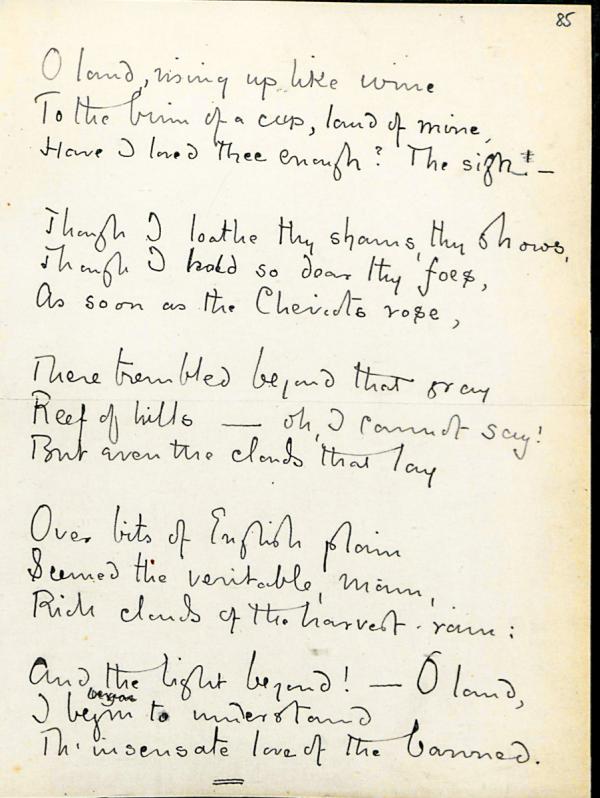 85
O land, rising up like wine
To the brim of a cup, land of mine,
Have I loved thee enough? The sight —
Though I loathe thy shams, thy shows,
Though I hold so dear thy foes,
As soon as the Cheviots rose,
There trembled beyond that gray
Reef of hills — oh, I cannot say!
But even the clouds that lay
Over bits of English plain
Seemed the veritable, main,
Rich clouds of the harvest-rain:
And the light beyond! — O land,
began
I begin to understand
Th' insensate love of the banned.